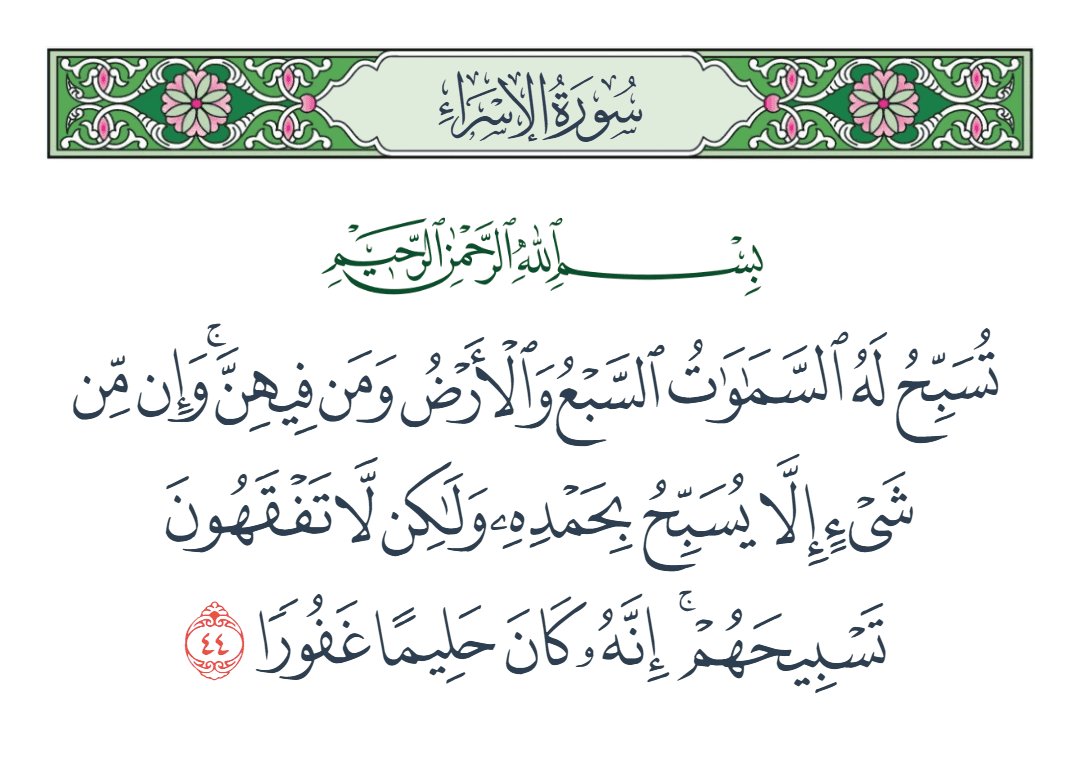 سُورَةُ الإِسۡرَاءِ
بِسۡمِ ٱللَّهِ ٱلرَّحۡمَٰنِ ٱلرَّحِيمِ
تُسَبِّحُ لَهُ ٱلسَّمَٰوَٰتُ ٱلسَّبۡعُ وَٱلۡأَرۡضُ وَمَن فِيهِنَّۚ وَإِن مِّن
شَيۡءٍ إِلَّا يُسَبِّحُ بِحَمۡدِهِۦ وَلَٰكِن لَّا تَفۡقَهُونَ
تَسۡبِيحَهُمۡۚ إِنَّهُۥ كَانَ حَلِيمًا غَفُورٗا ٤٤